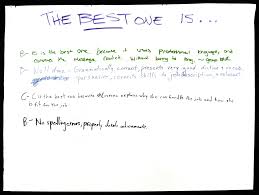 THE BEST ONE IS...
B- B is the best one because it uses professional language, and
conveys the message without being too long. ~
B- Well done - Grammatically correct, presents very good
persuasive, connects skills to job description, relevant
C- C is the best one because explains why she can handle the job and how she
is fit for the job
B- No spelling errors, properly details achievements.